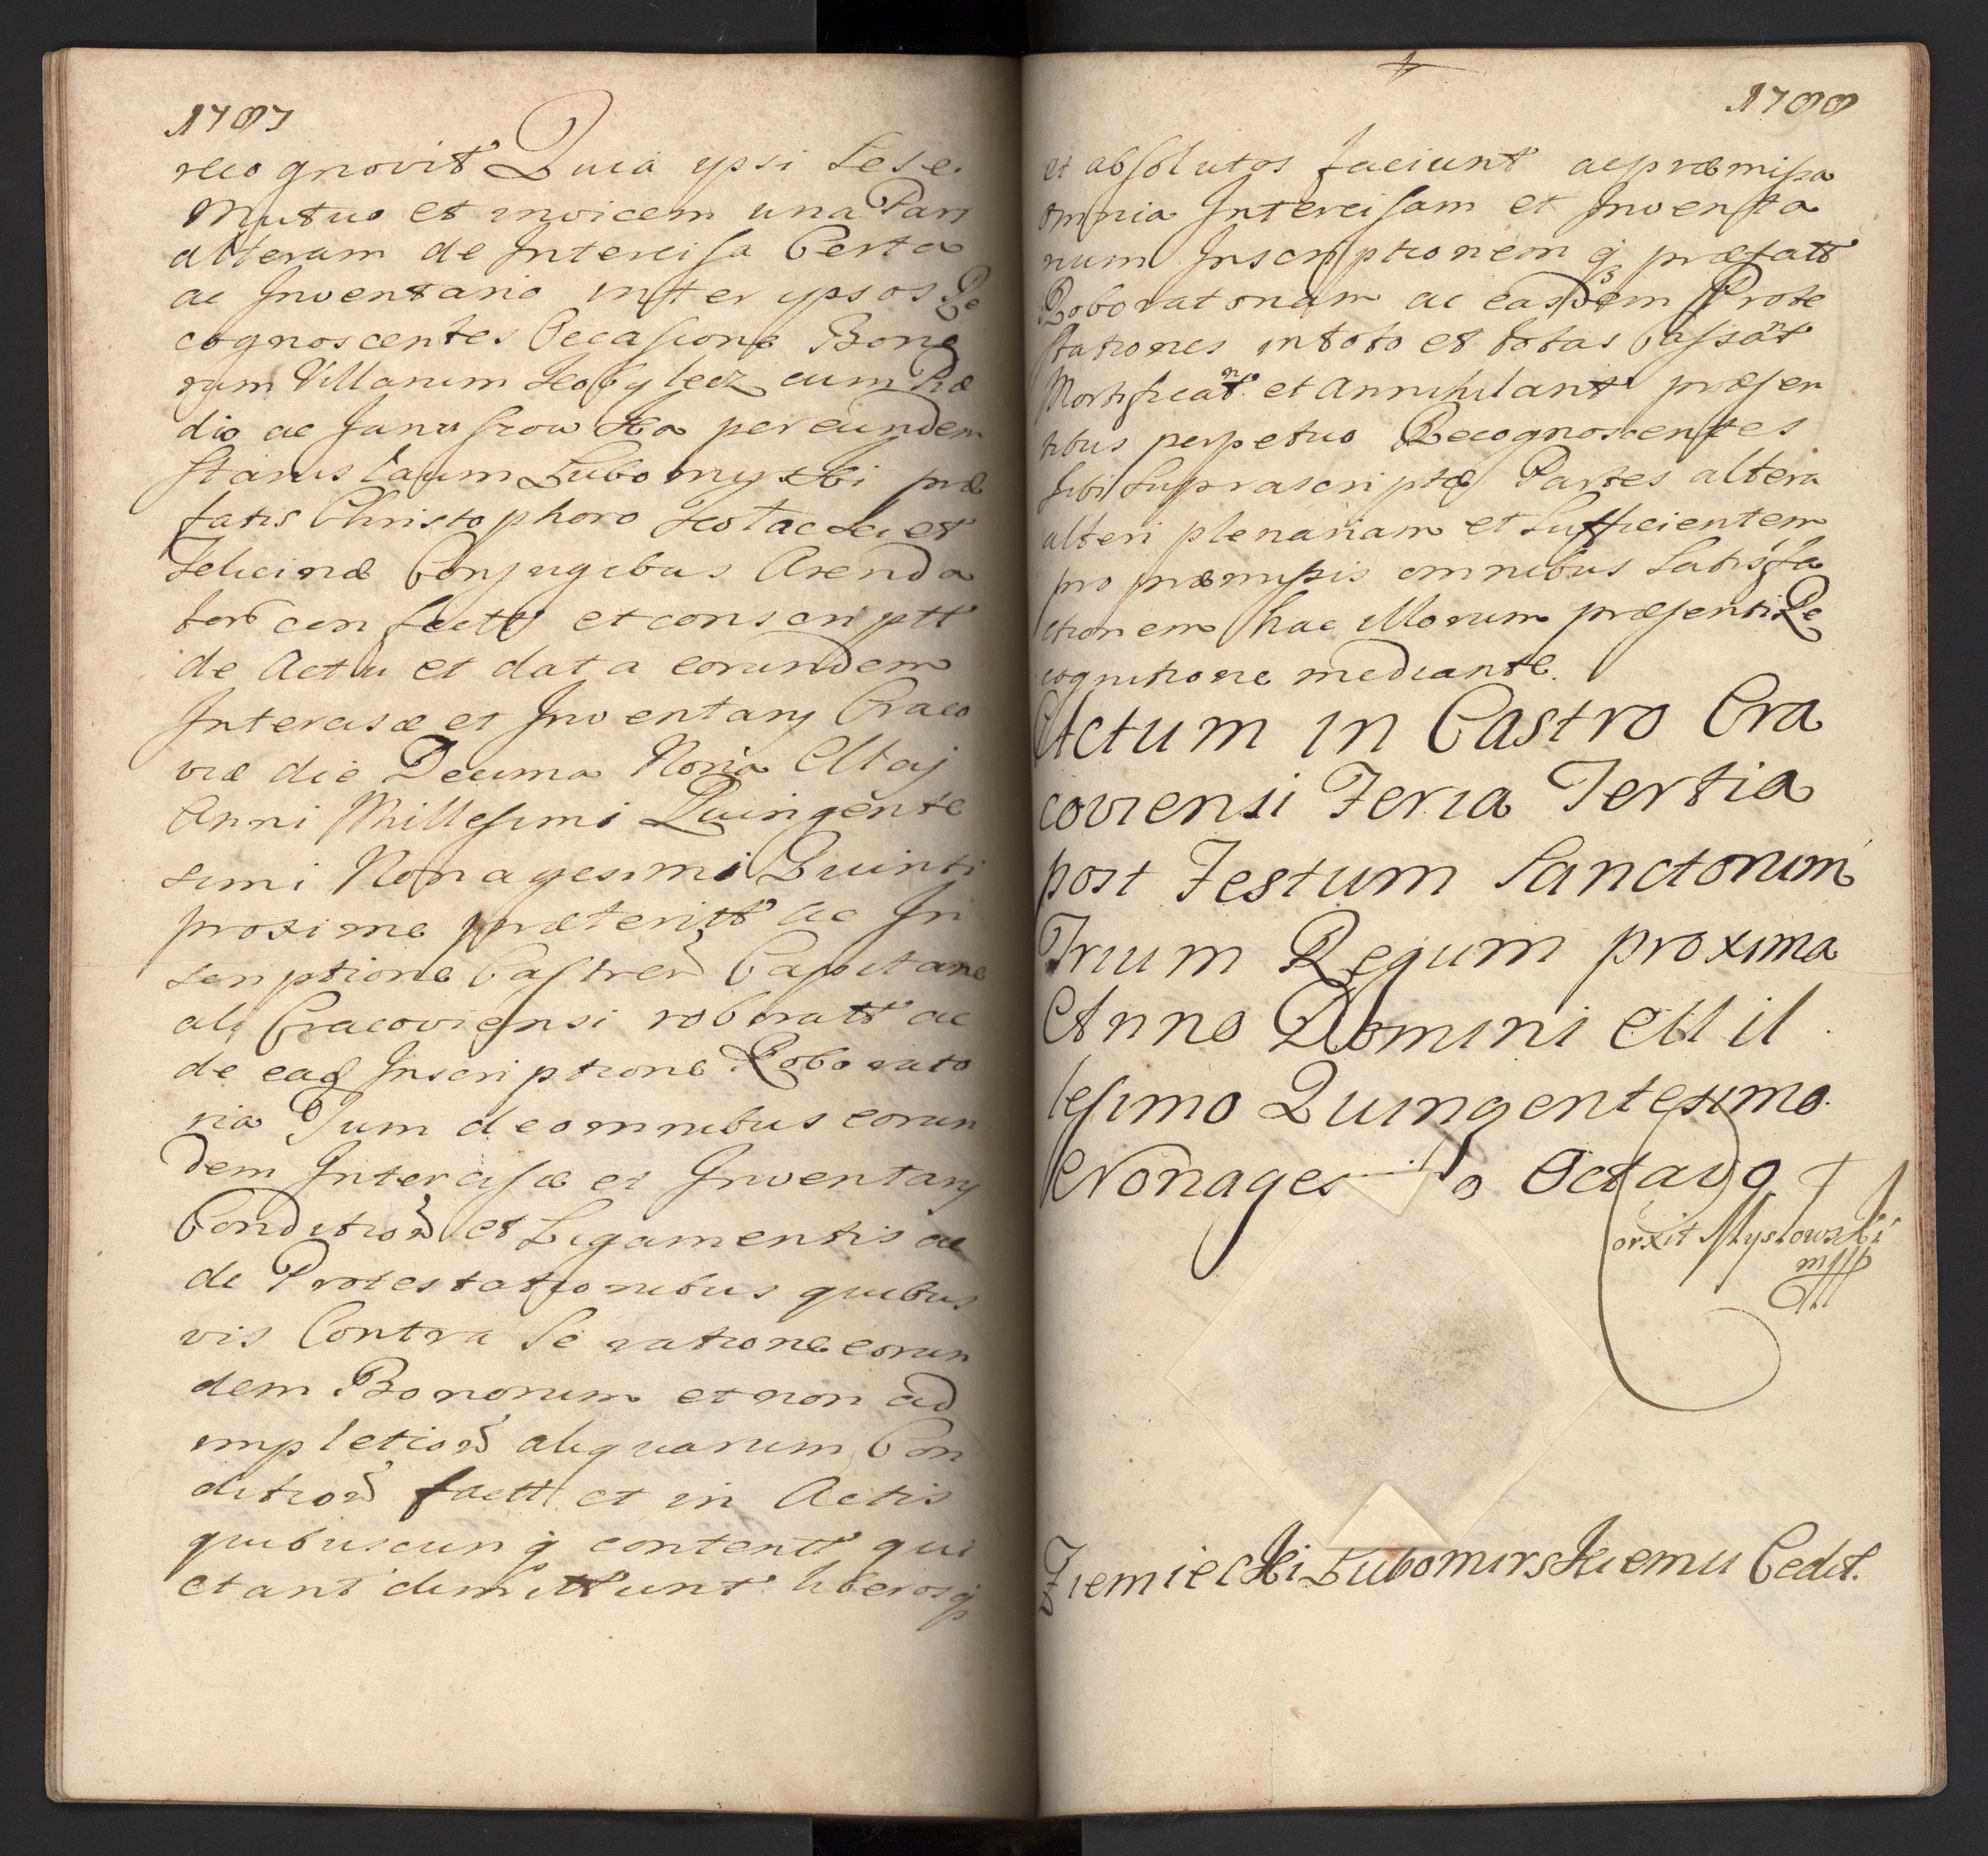 1787
recognovit Quia ypsi sese
Mutuo et invicem una Pars
alteram de Intercisa Certa
ac Inventario inter ypsos Re
cognoscentes Occasione Bono
rum Villarum Kobylecz cum Præ
dio ac Janussow Ka per eundem
Stanislaum Lubomyrski præ
fatis Christophoro et
Felicinæ Conjugibus Arenda
tor confectt et conscriptt
de Actu et data eorundem
Intercisæ et Inventarij Craco
viæ die Decima Nona Maij
Anni Millesimi Quingente
simi Nonagesimi Quinti
proxime præteritt ac In
scriptione Castren Capitane
ali Cracoviensi roboratt ac
de eadq Inscriptione Roborato
ria Tum de omnibus eorun
dem Intercisæ et Inventarij
Condition et Ligamentis ac
de Protestationibus quibus
vis Contra se ratione eorun
dem Bonorum et non ad
impletion aliquarum Con
dition factt et in Actis
quibuscunq contentt qui
etant dimittunt liberosq
1788
et absolutos faciunt ac præmissa
omnia Intercisam et Inventa
rium Inscriptionem q præfatt
Roboratoriam ac easdem Prote
stationes in toto et totas Cassant
Mortificant et Annihilant præsen
tibus perpetuo Recognoscentes
sibi suprascriptæ Partes altera
alteri plenariam et sufficientem
pro præmissis omnibus satisfa
ctionem hac illorum præsenti Re
cognitione mediante.
Actum in Castro Cra
coviensi Feria Tertia
post Festum Sanctorum
Trium Regum proxima
Anno Domini Mil
lesimo Quingentesimo
Nonages o Octavo
orxit Myslowski
mpp
Ziemiecki Lubomirskiemu Cedit.